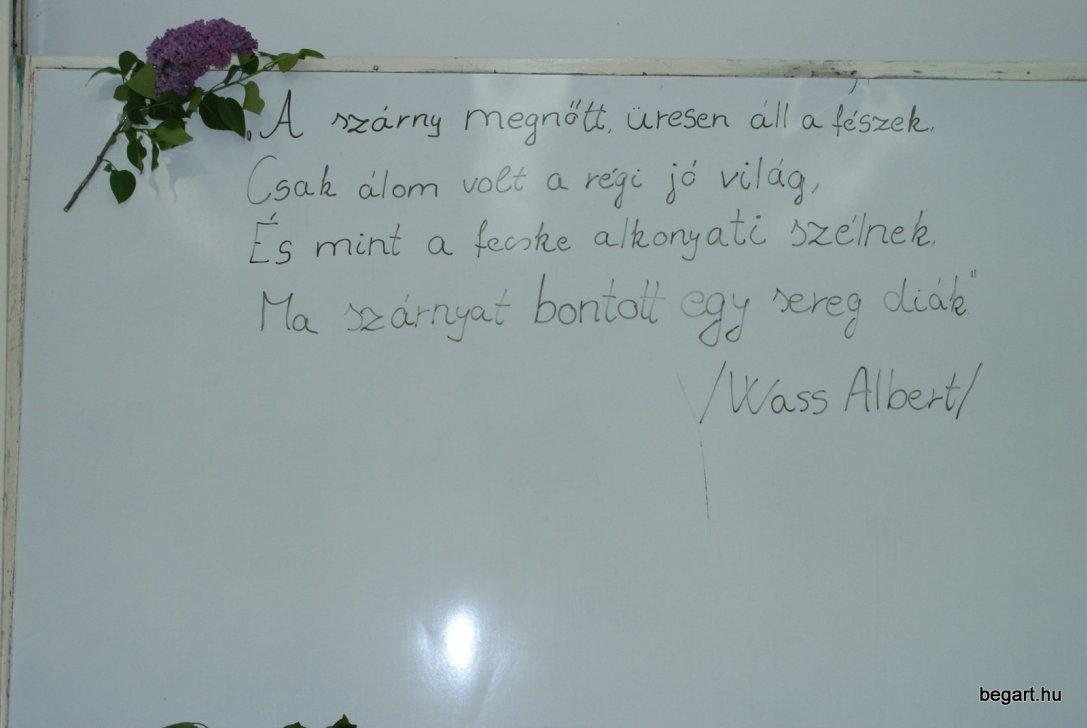 „A szárny megnőtt, üresen áll a fészek.
Csak álom volt a régi jó világ,
És mint a fecske alkonyati szélnek,
Ma szárnyat bontott egy sereg diák"
/Wass Albert/
begart.hu